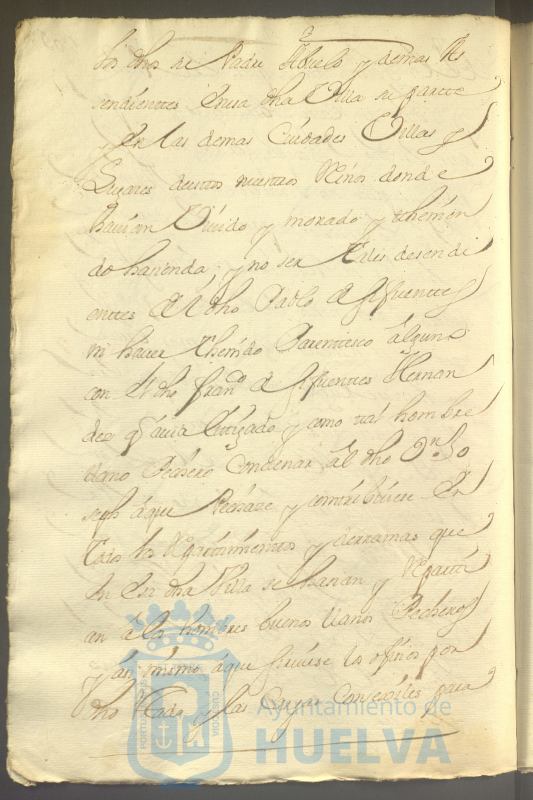 los dhos su Padre Abuelo y demas As
sendienttes en esa dha Villa su partte
y en las demas Ciudades Villas y
Lugares destos nuestros Reinos donde
havian Vivido y morado y thenien
do hacienda, y no ser tales desendi
enttes del dho Pablo de Sifuenttes
ni haver thenido Parentesco alguno
con el dho Franco de Sifuentes Hernan
dez q havia litigado y como tal hombre
llano Pechero Condenar al dho Dn Jo
seph a que Pechase y contribuiese en
todos los Repartimientos y derramas que
en esa dha Villa se hacian y Repartti
an a los hombres buenos llanos Pecheros
y asi mismo a que sirviese los ofisios por
dho estado y las Cargas Consejiles para
Ayuntamiento de
HUELVA